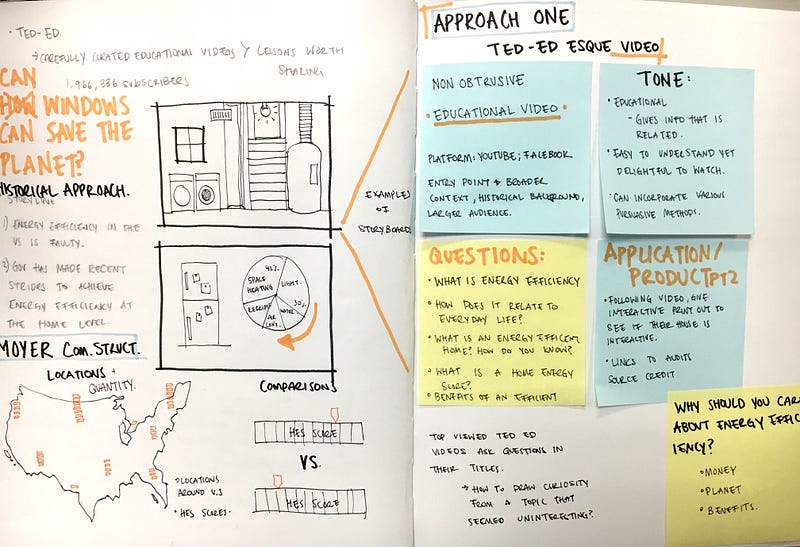 • TED-ED
→ CAREFULLY CURATED EDUCATIONAL VIDEOS > LESSONS WORTH
SHARING
1,966,336 SUBSCRIBERS
CAN
HOW WINDOWS
CAN SAVE THE
PLANET?
HISTORICAL APPROACH.
STORYLINE
1) ENERGY EFFICIENCY IN THE
US IS FAULTY.
2) GOV HAS MADE RECENT
STRIDES TO ACHIEVE
ENERGY EFFICIENCY AT
THE HOME LEVEL
EXAMPLES
OF
STORYBOARDS
45%
SPACE
HEATING
LIGHT.
30%
WATER
AIR
COND.
MOYER COM. STRUCT.
LOCATIONS +
QUANTITY.
• LOCATIONS
AROUND U.S
• HES SCORES.
COMPARISONS
HES SCORE
VS.
HES SCORE
APPROACH ONE
TED-ED ESQUE VIDEO
NON OBTRUSIVE
• EDUCATIONAL VIDEO •
PLATFORM: YOUTUBE; FACEBOOK
ENTRY POINT → BROADER
CONTEXT, HISTORICAL BACKGROUND,
LARGER AUDIENCE.
TONE:
• EDUCATIONAL
- GIVES INFO THAT IS
RELATED.
• EASY TO UNDERSTAND YET
DELIGHTFUL TO WATCH.
• CAN INCORPORATE VARIOUS
PURSUASIVE METHODS.
QUESTIONS:
• WHAT IS ENERGY EFFICIENCY
• HOW DOES IT RELATE TO
EVERYDAY LIFE?
• WHAT IS AN ENERGY EFFICIENT
HOME? HOW DO YOU KNOW?
• WHAT IS A HOME ENERGY
SCORE?
• BENEFITS OF AN EFFICIENT
APPLICATION/
PRODUCT PT2
• FOLLOWING VIDEO, GIVE
INTERACTIVE PRINT OUT TO
SEE IF THEIR HOUSE IS
INTERACTIVE.
• LINKS TO AUDITS
SOURCE CREDIT
TOP VIEWED TED ED
VIDEOS ASK QUESTIONS IN
THEIR TITLES.
→ HOW TO DRAW CURIOSITY
FROM A TOPIC THAT
SEEMED UNINTERESTING?
WHY SHOULD YOU CAR
ABOUT ENERGY EFFIC
IENCY?
• MONEY
• PLANET
• BENEFITS.